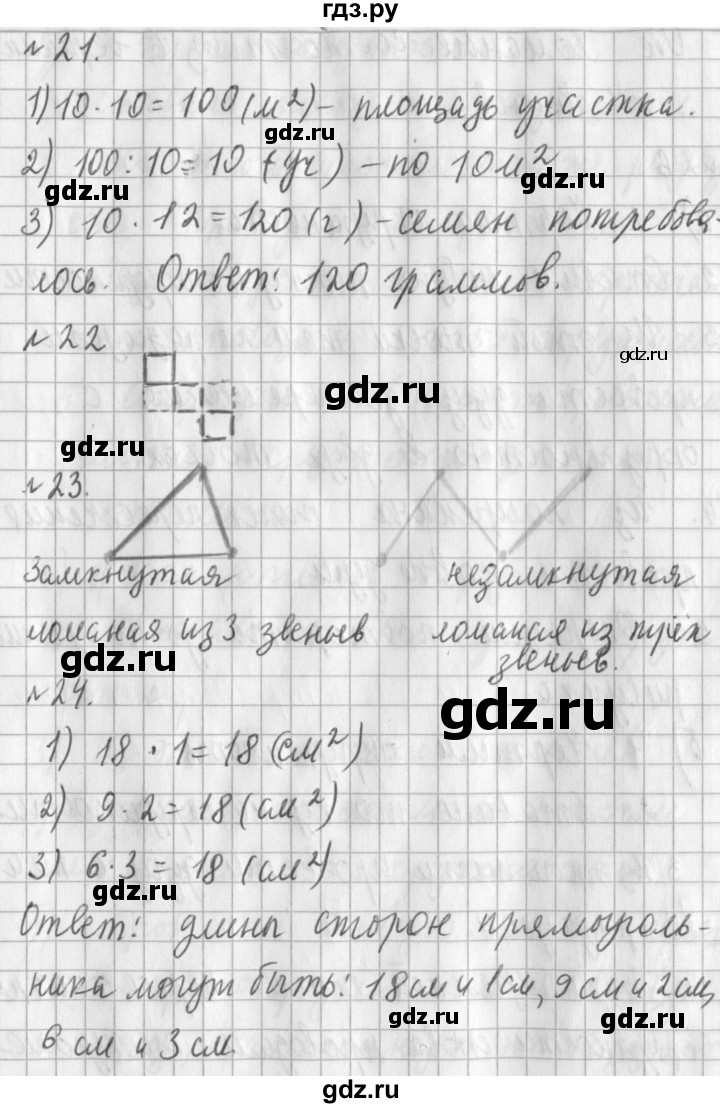 гдз.ру
№ 21.
1) 10 · 10 = 100 (м²) – площадь участка.
gdz.ru
2) 100 : 10 = 10 (уч) – по 10 м²
gdz.ru
gdz.ru
3) 10 · 12 = 120 (г) – семян потребова-
лось. Ответ: 120 граммов.
№ 22
gdz.ru
gdz.ru
gdz.ru
№ 23.
Замкнутая незамкнутая
ломаная из 3 звеньев ломаная из трёх
звеньев.
gdz.ru
№ 24.
gdz.ru
1) 18 · 1 = 18 (см²)
2) 9 · 2 = 18 (см²)
3) 6 · 3 = 18 (см²)
gdz.ru
Ответ: длины сторон прямоуголь-
ника могут быть: 18 см и 1 см, 9 см и 2 см,
gdz.ru
gdz.ru
6 см и 3 см.
gdz.ru